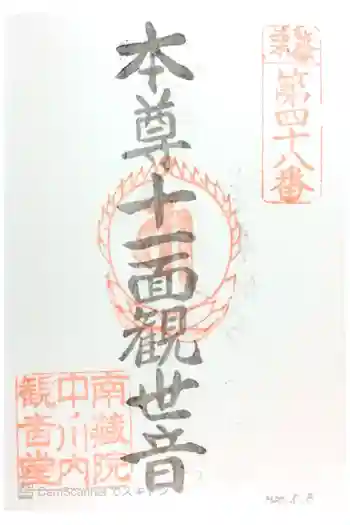 第四十八番
本尊十一面観世音
南蔵院
中川内
観音堂
CamScanner でスキャン